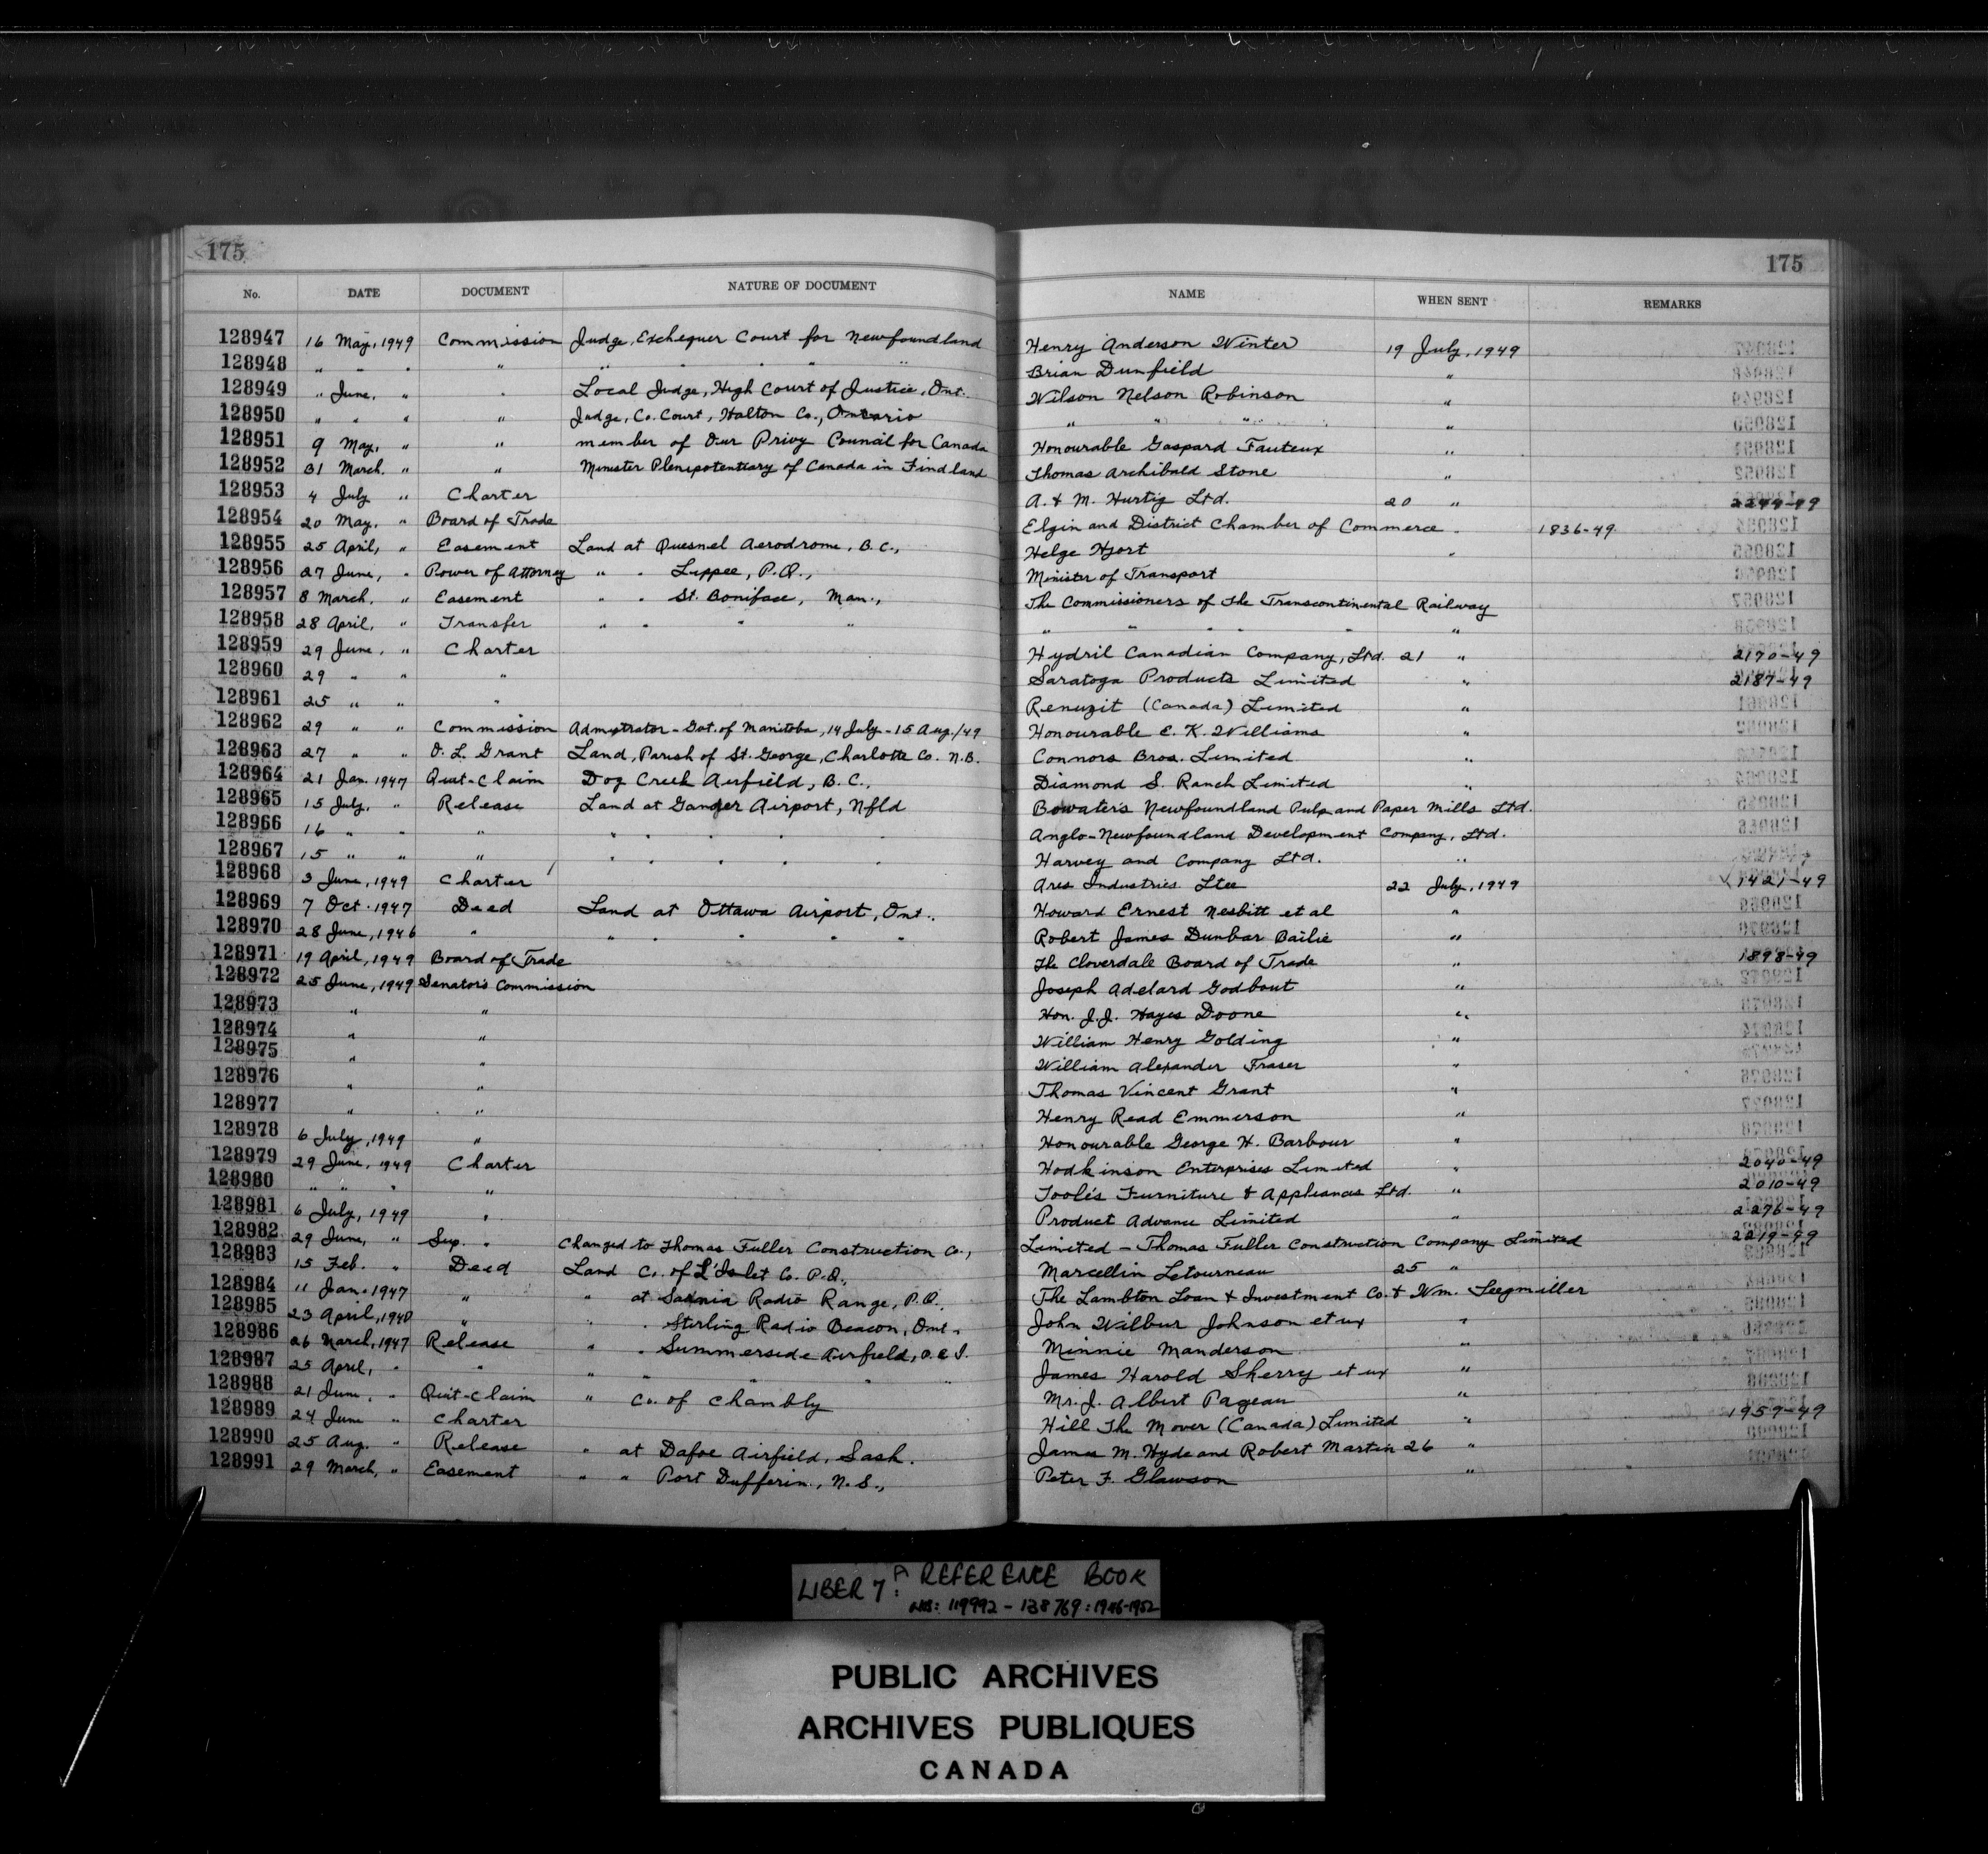 175 175
No. DATE DOCUMENT NATURE OF DOCUMENT NAME WHEN SENT REMARKS
128947 16 May, 1949 Commission Judge, Exchequer Court for Newfoundland Henry Anderson Winter 19 July, 1949
128948 " " " " " " " " " Brian Dunfield "
128949 " June, " " Local Judge, High Court of Justice, Ont. Wilson Nelson Robinson "
128950 " " " " Judge, Co. Court, Halton Co., Ontario " " " "
128951 9 May, " " member of Our Privy Council for Canada Honourable Gaspard Fauteux "
128952 31 March. " " Minister Plenipotentiary of Canada in Findland Thomas Archibald Stone "
128953 4 July " Charter A. & M. Hurtig Ltd. 20 " 2244-49
128954 20 May. " Board of Trade Elgin and District Chamber of Commerce " 1836-49
128955 25 April, " Easement Land at Quesnel Aerodrome, B.C., Helge Hjort "
128956 27 June, " Power of Attorney " " Lippee, P.Q., Minister of Transport
128957 8 March. " Easement " " St. Boniface, Man., The Commissioners of the Transcontinental Railway
128958 28 April. " Transfer " " " " " " " " " "
128959 29 June. " Charter Hydril Canadian Company, Ltd. 21 " 2170-49
128960 29 " " " Saratoga Products Limited " 2187-49
128961 25 " " " Renuzit (Canada) Limited "
128962 29 " " Commission Admistrator - Got. of Manitoba, 14 July - 15 Aug./49 Honourable E. K. Williams "
128963 27 " " O. L. Grant Land, Parish of St. George, Charlotte Co. N.B. Connors Bros. Limited "
128964 21 Jan. 1947 Quit-Claim Dog Creek Airfield, B.C., Diamond S. Ranch Limited "
128965 15 July. " Release Land at Gander Airport, Nfld Bowater's Newfoundland Pulp and Paper Mills Ltd.
128966 16 " " " " " " " " Anglo-Newfoundland Development Company, Ltd.
128967 15 " " " " " " " " Harvey and Company Ltd. "
128968 3 June, 1949 Charter Ares Industries Ltee 22 July, 1949 1421-49
128969 7 Oct. 1947 Deed Land at Ottawa Airport, Ont., Howard Ernest Nesbitt et al "
128970 28 June, 1946 " " " " " " Robert James Dunbar Bailie "
128971 19 April, 1949 Board of Trade The Cloverdale Board of Trade " 1898-49
128972 25 June, 1949 Senator's Commission Joseph Adelard Godbout "
128973 " " Hon. J.J. Hayes Doone "
128974 " " William Henry Golding "
128975 " " William Alexander Fraser "
128976 " " Thomas Vincent Grant "
128977 " " Henry Read Emmerson "
128978 6 July, 1949 " Honourable George H. Barbour "
128979 29 June, 1949 Charter Hodkinson Enterprises Limited " 2040-49
128980 " " " " Toole's Furniture & Appliances Ltd. " 2010-49
128981 6 July, 1949 " Product Advance Limited " 2276-49
128982 29 June, " Sup. " Changed to Thomas Fuller Construction Co., Limited - Thomas Fuller Construction Company Limited 2219-49
128983 15 Feb. " Deed Land Co. of L'Islet Co. P.Q., Marcellin Letourneau 25 "
128984 11 Jan. 1947 " " at Sarnia Radio Range, P.Q., The Lambton Loan & Investment Co. & Wm. Seegmiller
128985 23 April, 1940 " " " Stirling Radio Beacon, Ont. John Wilbur Johnson et ux "
128986 26 March, 1947 Release " " Summerside Airfield, P.E.I. Minnie Manderson "
128987 25 April, " " " " " " " James Harold Sherry et ux "
128988 21 June, " Quit-Claim " Co. of Chambly Mr. J. Albert Pageau "
128989 24 June " Charter Hill The Mover (Canada) Limited " 1959-49
128990 25 Aug. " Release " at Dafoe Airfield, Sask. James M. Hyde and Robert Martin 26 "
128991 29 March, " Easement " " Port Dufferin, N.S., Peter F. Glawson "
LIBER 7A: REFERENCE BOOK
NOS: 119992 - 138769: 1946-1952
PUBLIC ARCHIVES
ARCHIVES PUBLIQUES
CANADA